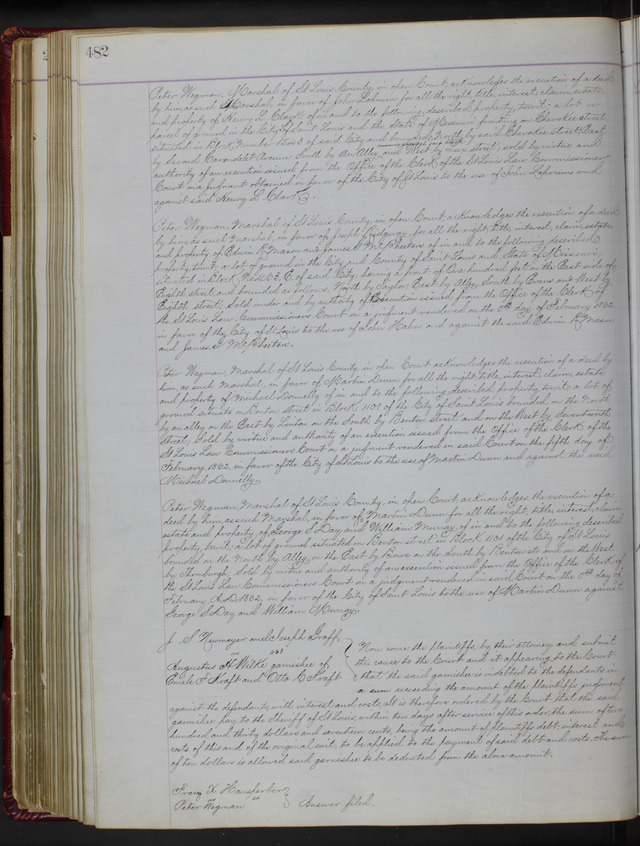 482
Peter Wegman, Marshal of St Louis County, in open Court, acknowledges the execution of a deed
by him, as such Marshal, in favor of John Lohrum for all the right, title, interest, claim, estate
and property of Henry L. Clark of in and to the following described property, to wit; a lot or
parcel of ground in the City of Saint Louis and the State of Missouri, fronting on Cherokee street,
situated in Block Number of said City and bounded North by said Cherokee street, East
by Second Carondelet Avenue South by An Alley, and West by street; sold by virtue and
authority of an execution issued from the Office of the Clerk of the St Louis Law Commissioners
Court on a judgment obtained in favor of the City of St Louis to the use of John Lohrums and
against said Henry L. Clark.
Peter Wegman, Marshal of St Louis County, in open Court, acknowledges the execution of a deed
by him, as such Marshal, in favor of Joseph Ridgway, for all the right, title, interest, claim, estate,
and property of Edwin R Mason and James S. McPheeters of in and to the following described
property to wit, a lot of ground in the City and County of Saint Louis and State of Missouri,
situated in Block No of said City, having a front of One hundred feet on the East side of
Eighth street, and bounded as follows, North by Taylor, East by Alley, South by Evans and West by
Eighth street; Sold under and by authority of Execution issued from the Office of the Clerk of
the St Louis Law Commissioners Court on a judgment rendered on the day of February 1862
in favor of the City of St Louis to the use of John Hahn and against the said Edwin R Mason
and James S McPheeters.
Peter Wegman, Marshal of St Louis County, in open Court acknowledges the execution of a deed by
him, as such Marshal, in favor of Martin Dunn for all the right, title, interest, claim, estate
and property of Michael Donnelly of in and to the following described property, to wit; a lot of
ground situate on Benton street in Block 1101 of the City of Saint Louis bounded on the North
by an alley, on the East by Linton on the South by Benton Street and on the West by Seventeenth
Street; Sold by virtue and authority of an execution issued from the Office of the Clerk of the
St Louis Law Commissioners Court on a judgment rendered in said Court on the fifth day of
February, 1862, in favor of the City of St Louis to the use of Martin Dunn and against the said
Michael Donnelly.
Peter Wegman, Marshal of St Louis County, in open Court acknowledges the execution of a
deed by him, as such Marshal, in favor of Martin Dunn for all the right, title, interest, claim,
estate and property, of George S Day and William Murray, of in and to the following described
property, to wit; a lot of ground situated on Benton street in Block 1101 of the City of St Louis
bounded on the North by Alley, on the East by on the South by Benton st. and on the West
by ; sold by virtue and authority of an execution issued from the Office of the Clerk of
the St Louis Law Commissioners Court on a judgment rendered in said Court on the day of
February, A.D. 1862, in favor of the City of Saint Louis to the use of Martin Dunn against
George S Day and William Murray.
J. S. Newmeyer and Joseph Graff,
Augustus H Wilke garnishee of
Emile F Kraft and Otto C Kraft
Now come the plaintiffs, by their attorney and submit
this cause to the Court and it appearing to the Court
that the said garnishee is indebted to the defendants in
a sum exceeding the amount of the plaintiffs judgment
against the defendants, with interest and costs, it is therefore ordered by the Court that the said
garnishee pay to the Sheriff of St Louis, within ten days after service of this order, the sum of
hundred and thirty dollars and seventeen cents, being the amount of plaintiffs debt, interest and
costs of this and of the original suit, to be applied to the payment of said debt and costs. The sum
of ten dollars is allowed said garnishee to be deducted from the above amount.
Franz X
Peter Wegman
Answer filed.